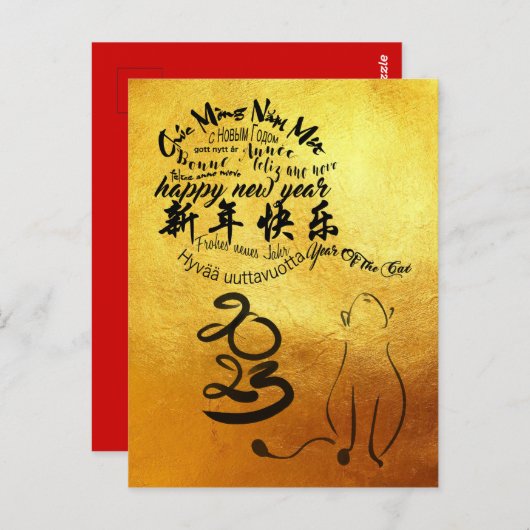 Chúc Mừng Năm Mới
С Новым Годом
gott nytt år
Bonne Année
feliz ano novo
felice anno nuovo
happy new year
新年快乐
Frohes neues Jahr
Year Of The Cat
Hyvää uuttavuotta
2023
zazzle